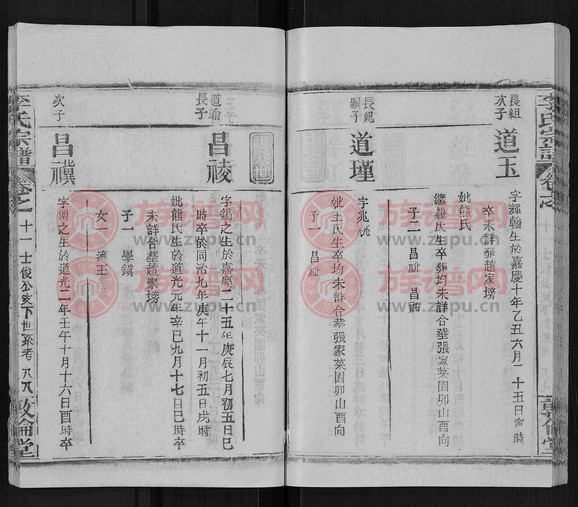 長組
次子
道玉
字 翰生於嘉慶十年乙丑六月二十五日寅時
卒未詳葬趙家塝
妣熊氏
繼羅氏生卒均未詳合葬張家菜園卯山酉向
子二 昌祉 昌
長組
嗣子
道瑾
字兆
妣王氏生卒均未詳合葬張家菜園卯山酉向
子一 昌祉
道瑜
長子
昌祾
字錫之生於嘉慶二十五年庚辰七月初五日巳
時卒於同治九年庚午十一月初五日戌時
妣熊氏生於道光元年辛巳九月十七日巳時卒
未詳合葬趙家塝
子一 學鎮
女一 適王
次子
昌禩
字 之生於道光二年壬午十月十六日酉時卒
李氏宗譜
卷之
十一 士俊公支下世系考 八八
敦倫堂
族谱网
www.zupu.cn